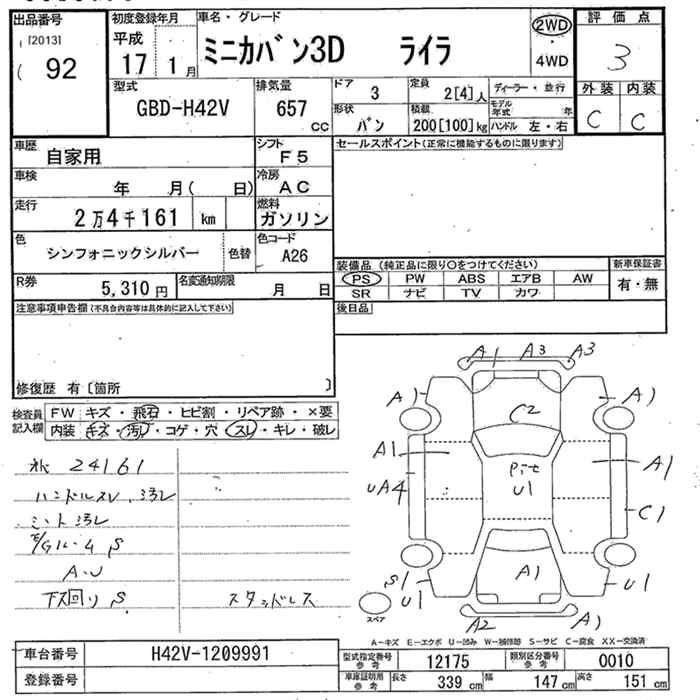 出品番号
[2013]
92
初度登録年月
平成
17 1月
車名・グレード
ミニカバン3D ライラ
2WD
・
4WD
評価点
3
外装 内装
C C
型式
GBD-H42V
排気量
657 cc
ドア 3
定員 2[4]人
ディーラー・並行
形状 バン
積載 200[100]kg
モデル年式 年
ハンドル 左・右
車歴
自家用
シフト
F5
セールスポイント(正常に機能するものに限ります)
車検
年 月( 日)
冷房
AC
走行
2万4千161 km
燃料
ガソリン
色
シンフォニックシルバー
色替
色コード
A26
装備品(純正品に限り○をつけてください)
新車保証書
PS PW ABS エアB AW
有・無
SR ナビ TV カワ
R券
5,310円
名変通知期限
月 日
注意事項申告欄(不具合内容等は具体的に記入して下さい)
後日品
修復歴 有〔箇所 〕
検査員
記入欄
FW キズ・飛石・ヒビ割・リペア跡・×要
内装 キズ・汚レ・コゲ・穴・スレ・キレ・破レ
24161
ハンドルスレ、汚レ
シート汚レ
S
A-U
下回リ S
スタッドレス
A1 A3 A3
A1 A1
C2
A1 A1
Pit
U1
UA4 C1
S1
U1 U1
A1
A2 A1
スペア
A-キズ E-エクボ U-凹み W-補修跡 S-サビ C-腐食 XX-交換済
車台番号 H42V-1209991
登録番号
型式指定番号
参考
12175
類別区分番号
参考
0010
車庫証明用
参考
長さ 339cm 幅 147cm 高さ 151cm